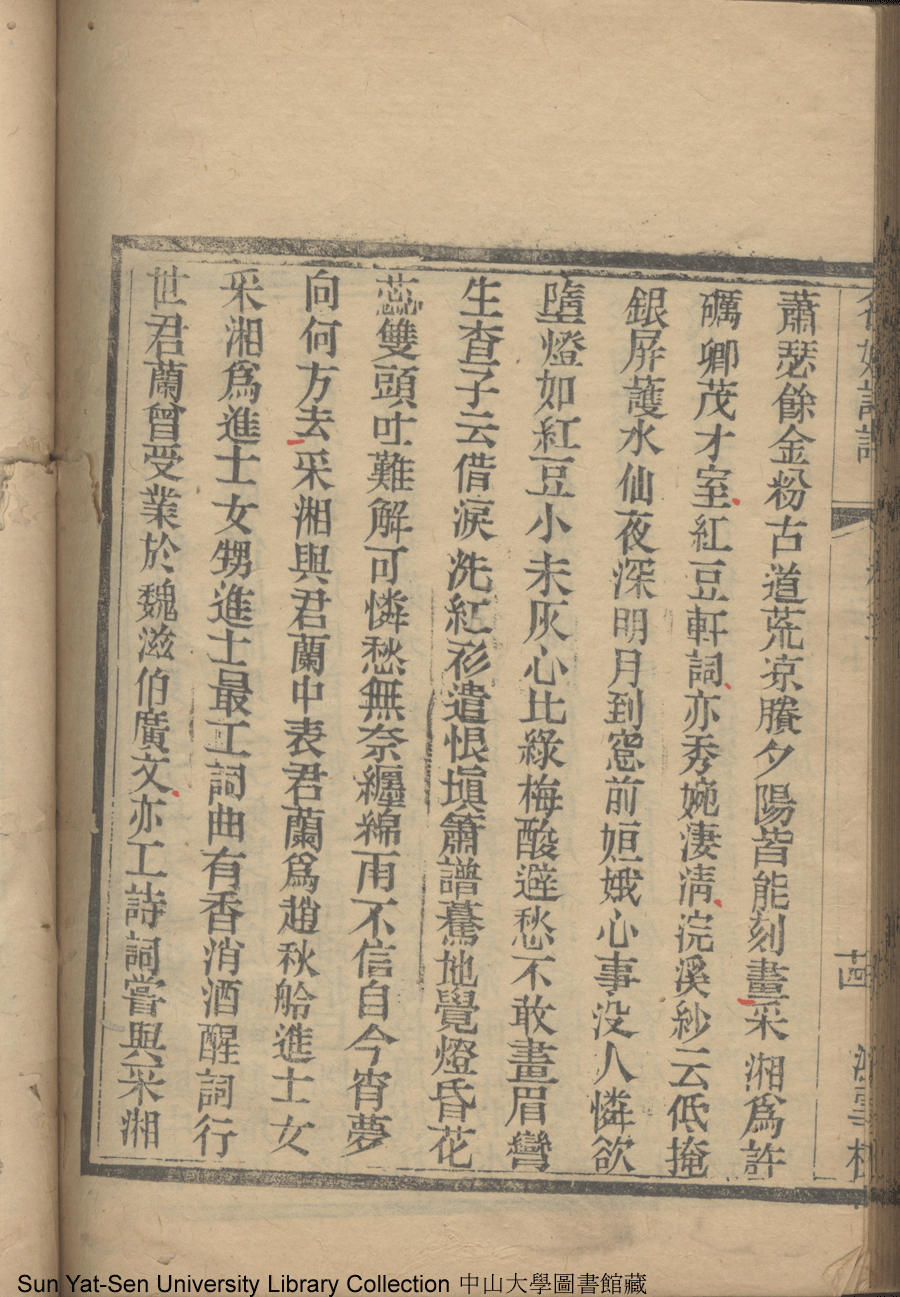 蕭瑟餘金粉古道荒凉賸夕陽皆能刻畫采湘爲許
礪卿茂才室紅豆軒詞亦秀婉淒淸浣溪紗云低掩
銀屏護水仙夜深明月到窓前姮娥心事没人憐欲
墮燈如紅豆小未灰心比綠梅酸避愁不敢畫眉彎
生查子云借淚洗紅衫遣恨塡簫譜驀地覺燈昏花
蕊雙頭吐難解可憐愁無奈纏綿雨不信自今宵夢
向何方去采湘與君蘭中表君蘭爲趙秋舲進士女
采湘爲進士女甥進士最工詞曲有香消酒醒詞行
世君蘭曾受業於魏滋伯廣文亦工詩詞嘗與采湘
Sun Yat-Sen University Library Collection 中山大學圖書館藏